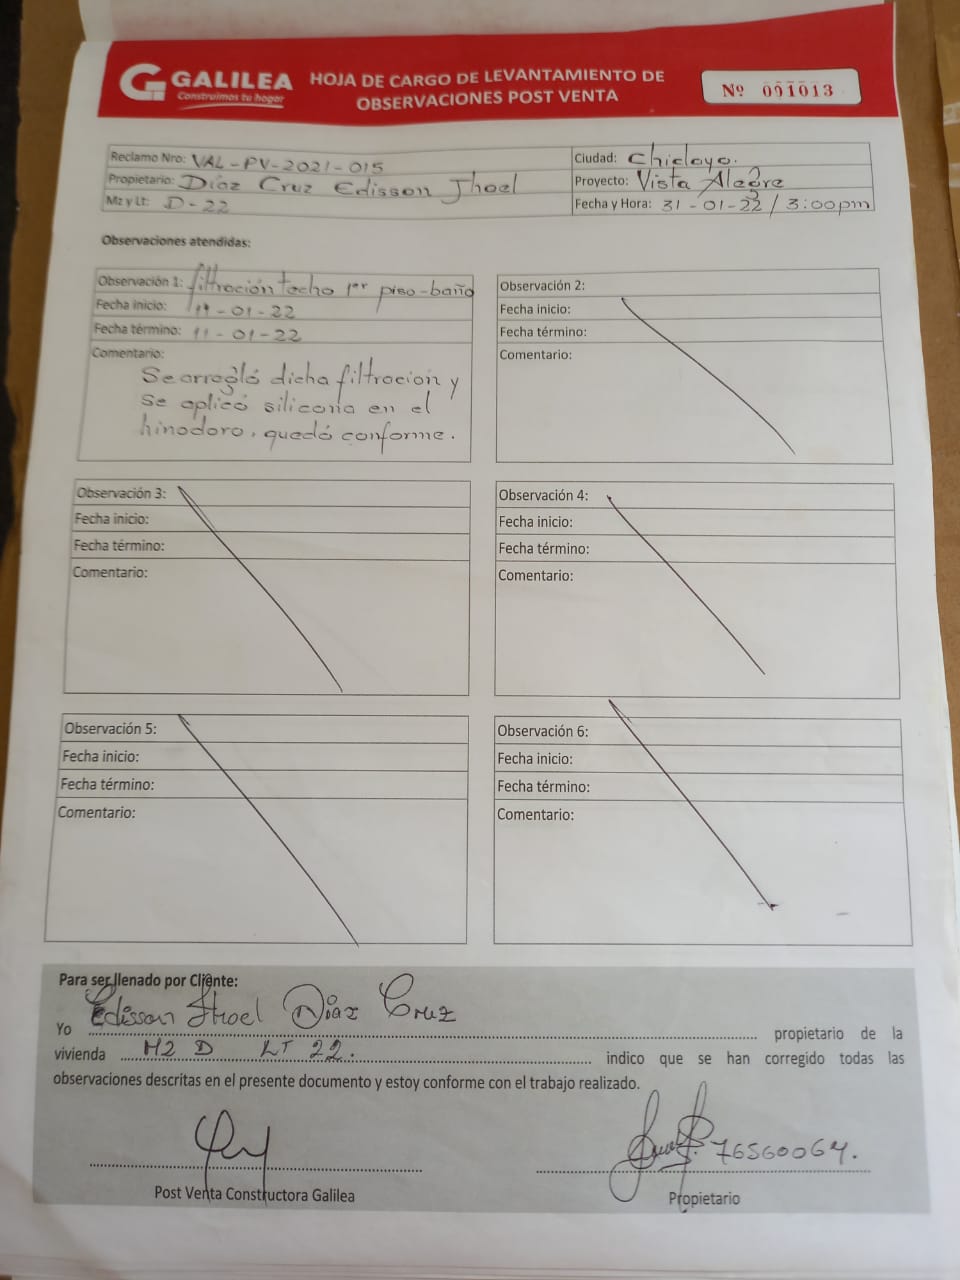 GALILEA
Construimos tu hogar
HOJA DE CARGO DE LEVANTAMIENTO DE
OBSERVACIONES POST VENTA
Nº 001013
Reclamo Nro: VAL-PV-2021-015
Ciudad: Chiclayo.
Propietario: Díaz Cruz Edisson Jhoel
Proyecto: Vista Alegre
Mz y Lt: D-22
Fecha y Hora: 31-01-22 / 3:00pm
Observaciones atendidas:
Observación 1: filtración techo 1er piso-baño
Fecha inicio: 11-01-22
Fecha término: 11-01-22
Comentario:
Se arregló dicha filtrocion y
se aplicó silicona en el
hinodoro, quedó conforme.
Observación 2:
Fecha inicio:
Fecha término:
Comentario:
Observación 3:
Fecha inicio:
Fecha término:
Comentario:
Observación 4:
Fecha inicio:
Fecha término:
Comentario:
Observación 5:
Fecha inicio:
Fecha término:
Comentario:
Observación 6:
Fecha inicio:
Fecha término:
Comentario:
Para ser llenado por Cliente:
Yo Edisson Jhoel Díaz Cruz propietario de la
vivienda MZ D LT 22. indico que se han corregido todas las
observaciones descritas en el presente documento y estoy conforme con el trabajo realizado.
76560064.
Post Venta Constructora Galilea
Propietario